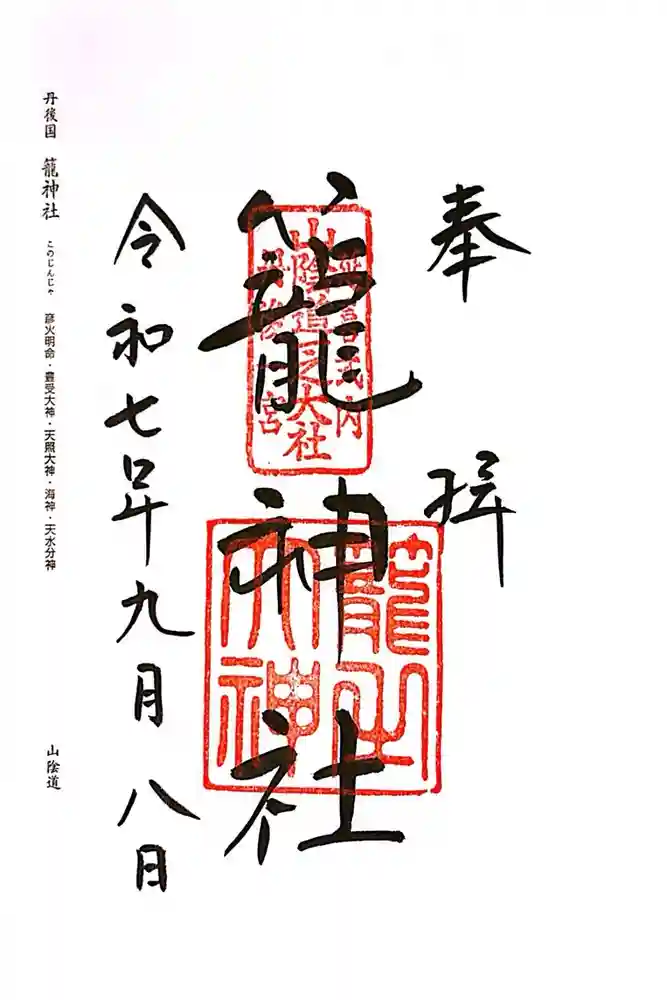 奉拝
延喜式内
山陰道之大社
丹後一宮
籠神社
籠之
大神
令和七年九月八日
丹後国 籠神社 このじんじゃ 彦火明命・豊受大神・天照大神・海神・天水分神 山陰道